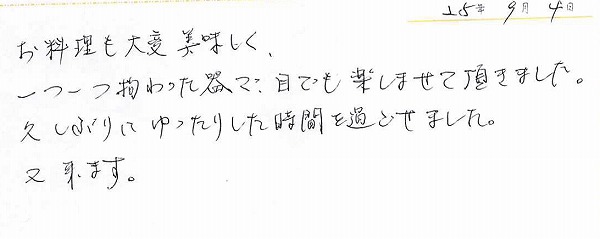 25年 9月 4日
お料理も大変美味しく、
一つ一つ拘わった器で、目でも楽しませて頂きました。
久しぶりにゆったりした時間を過ごせました。
又来ます。